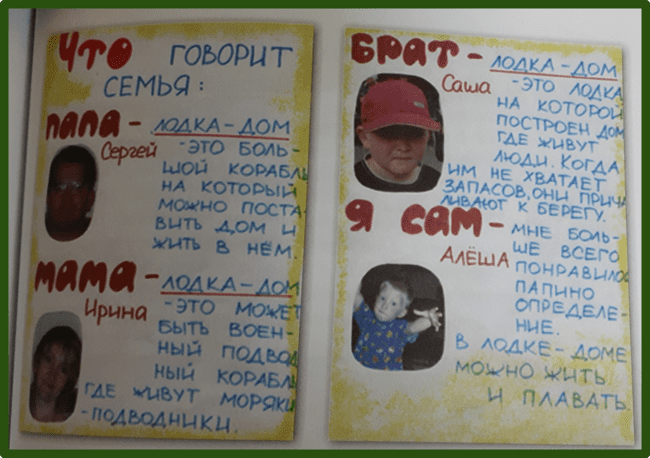 ЧТО ГОВОРИТ
СЕМЬЯ:
ПАПА - ЛОДКА-ДОМ
Сергей - ЭТО БОЛЬ-
ШОЙ КОРАБЛЬ
НА КОТОРЫЙ
МОЖНО ПОСТА-
ВИТЬ ДОМ И
ЖИТЬ В НЁМ.
МАМА - ЛОДКА-ДОМ
Ирина - ЭТО МОЖЕТ
БЫТЬ ВОЕН-
НЫЙ ПОДВОД
НЫЙ КОРАБЛЬ
ГДЕ ЖИВУТ МОРЯКИ
-ПОДВОДНИКИ.
БРАТ - ЛОДКА-ДОМ
Саша - ЭТО ЛОДКА
НА КОТОРОЙ
ПОСТРОЕН ДОМ
ГДЕ ЖИВУТ
ЛЮДИ. КОГДА
ИМ НЕ ХВАТАЕТ
ЗАПАСОВ, ОНИ ПРИЧА
ЛИВАЮТ К БЕРЕГУ.
Я САМ - МНЕ БОЛЬ-
АЛЁША ШЕ ВСЕГО
ПОНРАВИЛО
ПАПИНО
ОПРЕДЕЛЕ-
НИЕ.
В ЛОДКЕ-ДОМЕ
МОЖНО ЖИТЬ
И ПЛАВАТЬ